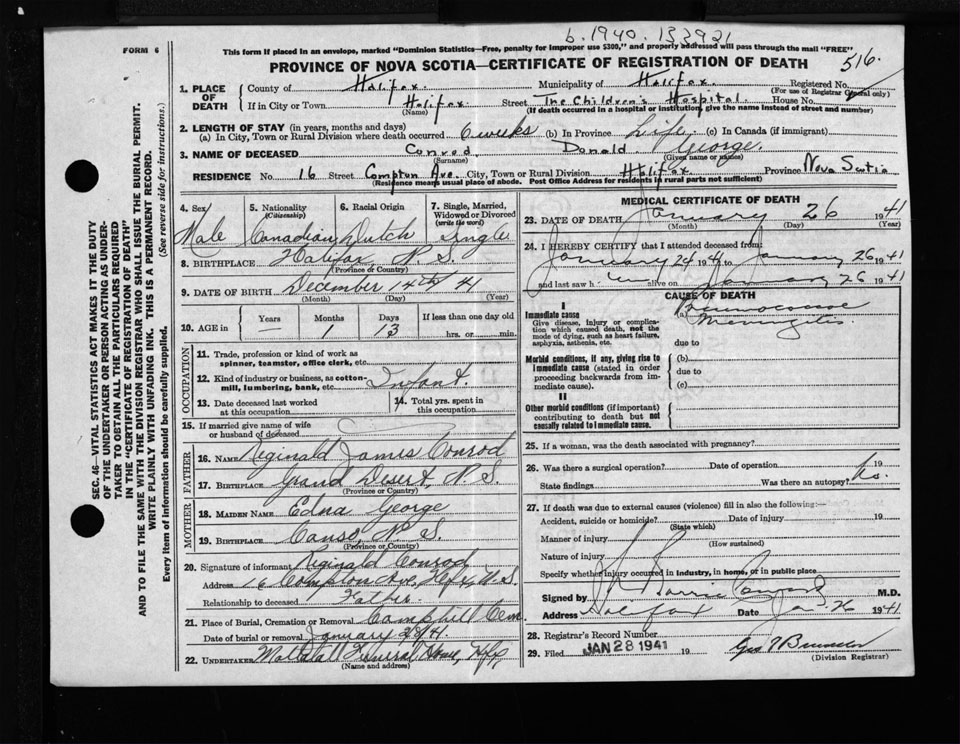 b. 1940. 133921
FORM 6
This form if placed in an envelope, marked "Dominion Statistics—Free, penalty for improper use $300," and properly addressed will pass through the mail "FREE"
PROVINCE OF NOVA SCOTIA—CERTIFICATE OF REGISTRATION OF DEATH
516.
SEC. 46—VITAL STATISTICS ACT MAKES IT THE DUTY
OF THE UNDERTAKER OR PERSON ACTING AS UNDER-
TAKER TO OBTAIN ALL THE PARTICULARS REQUIRED
IN THE "CERTIFICATE OF REGISTRATION OF DEATH"
AND TO FILE THE SAME WITH THE DIVISION REGISTRAR WHO SHALL ISSUE THE BURIAL PERMIT.
WRITE PLAINLY WITH UNFADING INK. THIS IS A PERMANENT RECORD.
(See reverse side for instructions.)
Every item of information should be carefully supplied.
1. PLACE OF DEATH
County of Halifax. Municipality of Halifax. Registered No.
(For use of Registrar General only)
If in City or Town Halifax Street The Children's Hospital. House No.
(Name) (If death occurred in a hospital or institution, give the name instead of street and number)
2. LENGTH OF STAY (in years, months and days)
(a) In City, Town or Rural Division where death occurred 6 weeks (b) In Province Life. (c) In Canada (if immigrant)
3. NAME OF DECEASED Conrod. Donald George.
(Surname) (Given name or names)
RESIDENCE No. 16 Street Compton Ave. City, Town or Rural Division Halifax Province Nova Scotia
(Residence means usual place of abode. Post Office Address for residents in rural parts not sufficient)
4. Sex
Male
5. Nationality
(Citizenship)
Canadian
6. Racial Origin
Dutch
7. Single, Married,
Widowed or Divorced
(write the word)
Single
8. BIRTHPLACE Halifax, N.S.
(Province or Country)
9. DATE OF BIRTH December 14th 41
(Month) (Day) (Year)
10. AGE in
Years — Months 1 Days 13
If less than one day old
hrs. or min.
OCCUPATION
11. Trade, profession or kind of work as
spinner, teamster, office clerk, etc.
12. Kind of industry or business, as cotton-
mill, lumbering, bank, etc. Infant.
13. Date deceased last worked
at this occupation
14. Total yrs. spent in
this occupation
15. If married give name of wife
or husband of deceased
FATHER
16. NAME Reginald James Conrod
17. BIRTHPLACE Grand Desert, N.S.
(Province or Country)
MOTHER
18. MAIDEN NAME Edna George
19. BIRTHPLACE Canso, N.S.
(Province or Country)
20. Signature of informant Reginald Conrod
Address 16 Compton Ave, Hfx, N.S.
Relationship to deceased Father.
21. Place of Burial, Cremation or Removal Camphill Cem
Date of burial or removal January 28/41.
22. UNDERTAKER Funeral Home, Hfx
(Name and address)
MEDICAL CERTIFICATE OF DEATH
23. DATE OF DEATH January 26 1941
(Month) (Day)
24. I HEREBY CERTIFY that I attended deceased from
January 24 1941 to January 26 1941
and last saw h im alive on January 26 1941
CAUSE OF DEATH
I
Immediate cause
Give disease, injury or complica-
tion which caused death, not the
mode of dying, such as heart failure,
asphyxia, asthenia, etc.
(a) Pneumococcal
Meningitis
due to
Morbid conditions, if any, giving rise to
immediate cause (stated in order
proceeding backwards from im-
mediate cause).
(b)
due to
(c)
II
Other morbid conditions (if important)
contributing to death but not
causally related to immediate cause.
25. If a woman, was the death associated with pregnancy?
26. Was there a surgical operation? Date of operation 19
State findings Was there an autopsy? No.
27. If death was due to external causes (violence) fill in also the following:—
Accident, suicide or homicide? Date of injury 19
(State which)
Manner of injury
(How sustained)
Nature of injury
Specify whether injury occurred in industry, in home, or in public place
Signed by M.D.
Address Halifax Date Jan. 26 1941
28. Registrar's Record Number
29. Filed JAN 28 1941 19
(Division Registrar)